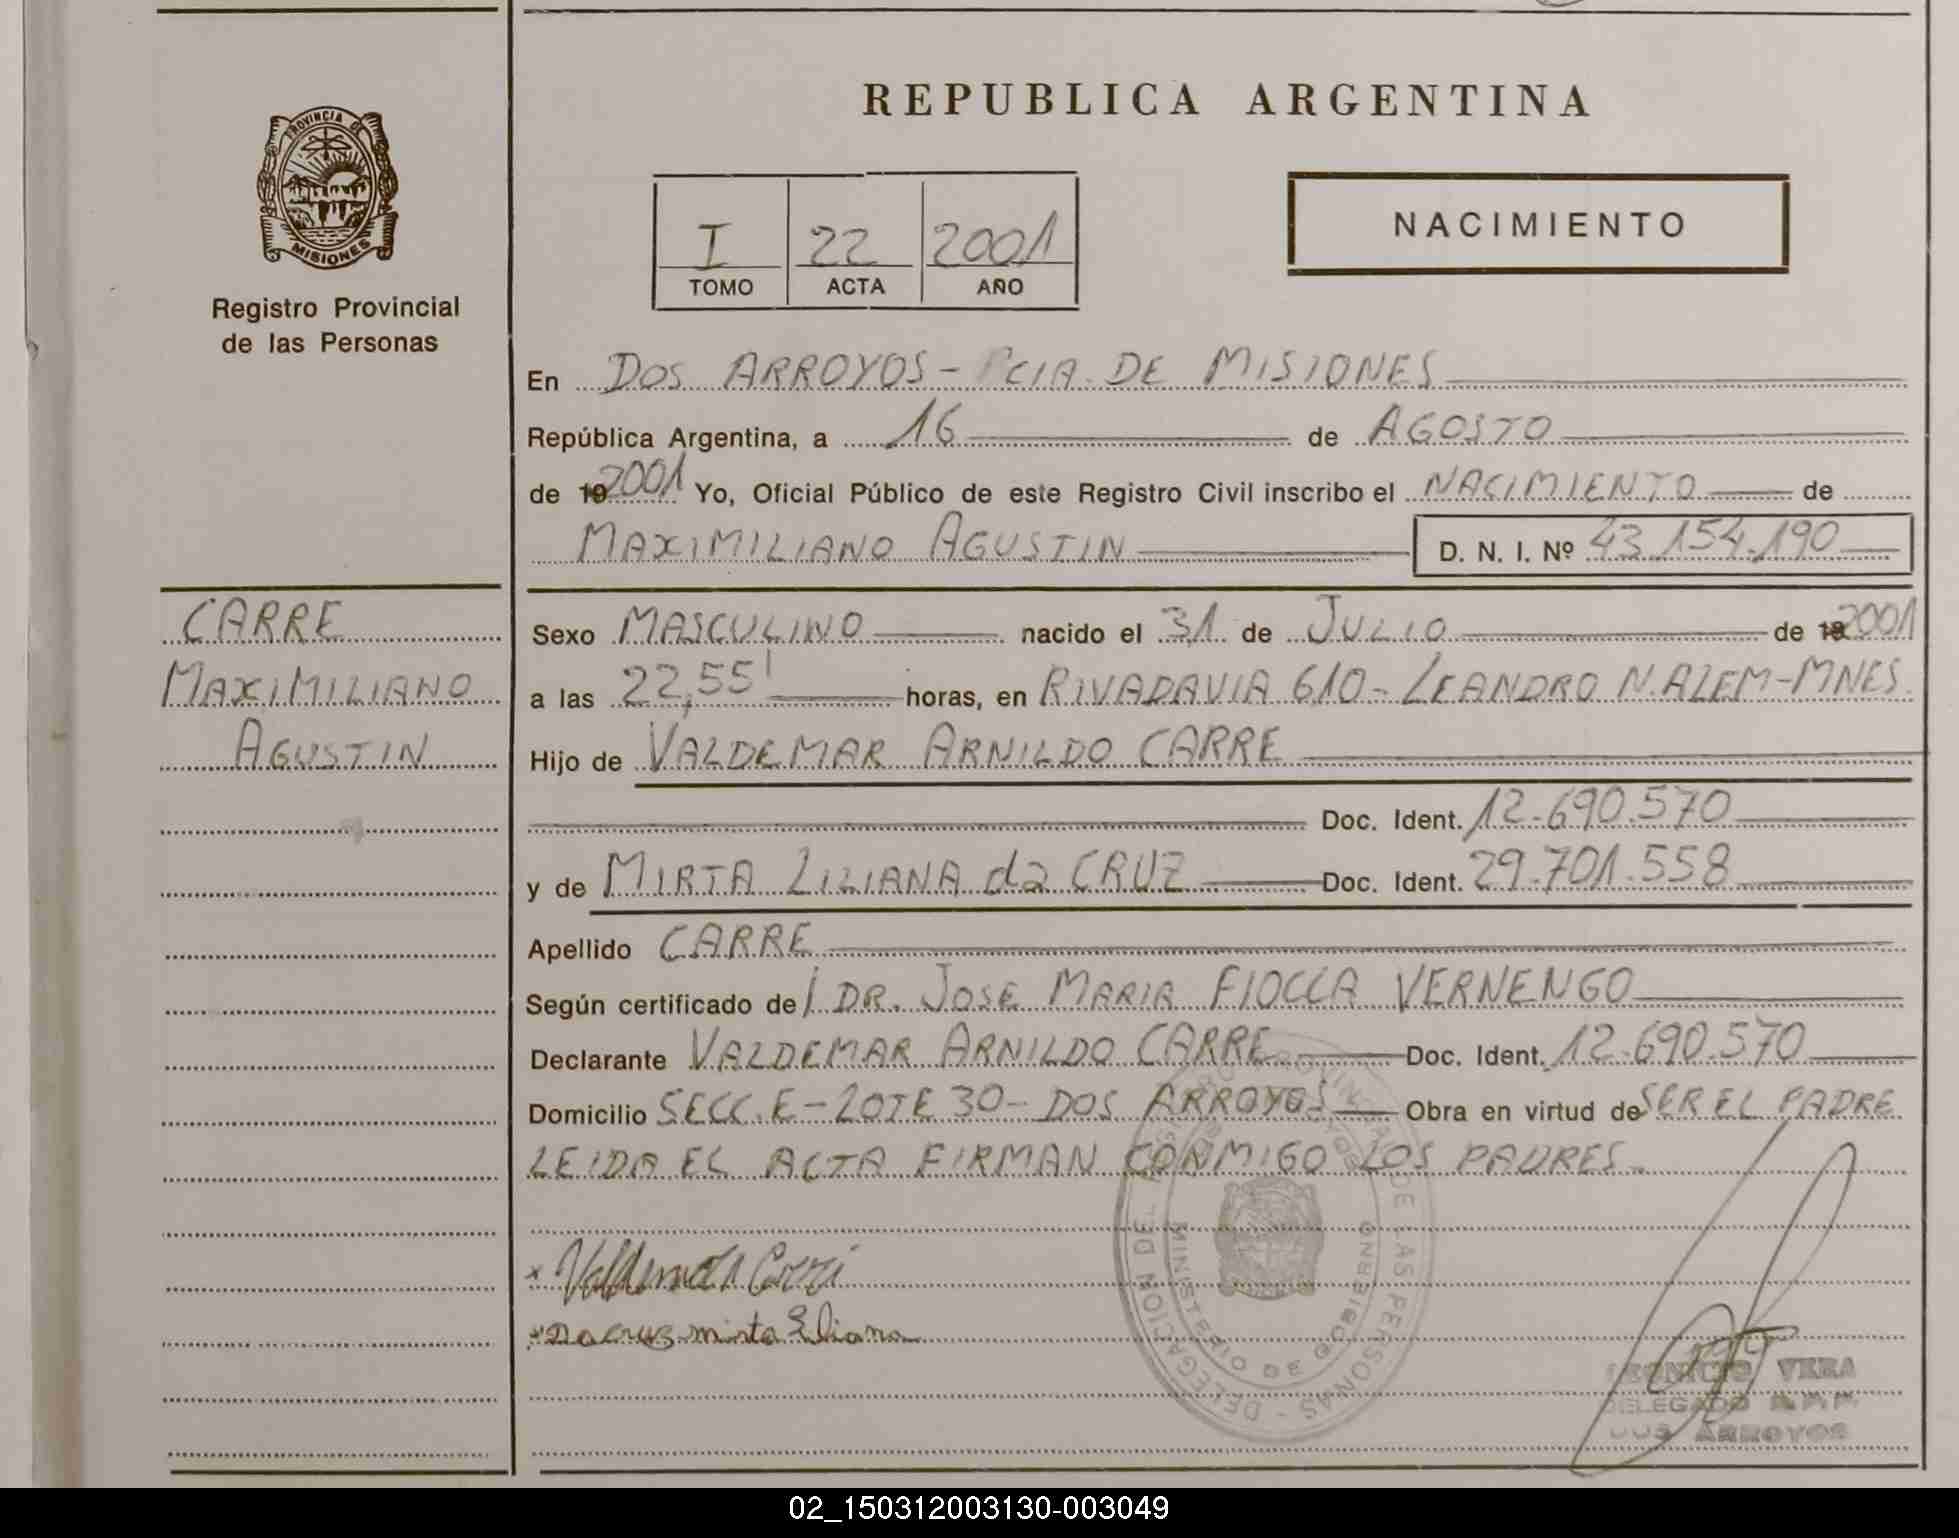 REPUBLICA ARGENTINA
PROVINCIA DE
MISIONES
Registro Provincial
de las Personas
I 22 2001
TOMO ACTA AÑO
NACIMIENTO
En DOS ARROYOS - PCIA. DE MISIONES
República Argentina, a 16 de AGOSTO
de 19 2001 Yo, Oficial Público de este Registro Civil inscribo el NACIMIENTO de
MAXIMILIANO AGUSTIN D. N. I. Nº 43.154.190
CARRE
MAXIMILIANO
AGUSTIN
Sexo MASCULINO nacido el 31 de JULIO de 19 2001
a las 22,55' horas, en RIVADAVIA 610 - LEANDRO N. ALEM - MNES.
Hijo de VALDEMAR ARNILDO CARRE
Doc. Ident. 12.690.570
y de MIRTA LILIANA da CRUZ Doc. Ident. 29.701.558
Apellido CARRE
Según certificado de DR. JOSE MARIA FIOCCA VERNENGO
Declarante VALDEMAR ARNILDO CARRE Doc. Ident. 12.690.570
Domicilio SECC. E - LOTE 30 - DOS ARROYOS Obra en virtud de SER EL PADRE
LEIDA EL ACTA FIRMAN CONMIGO LOS PADRES.
DE LAS PERSONAS - DELEGACION DE
MINISTERIO DE GOBIERNO
x Valdemar Carre
x Da cruz mirta Liliana
VERA
DELEGADO R. P. P.
DOS ARROYOS
02_150312003130-003049